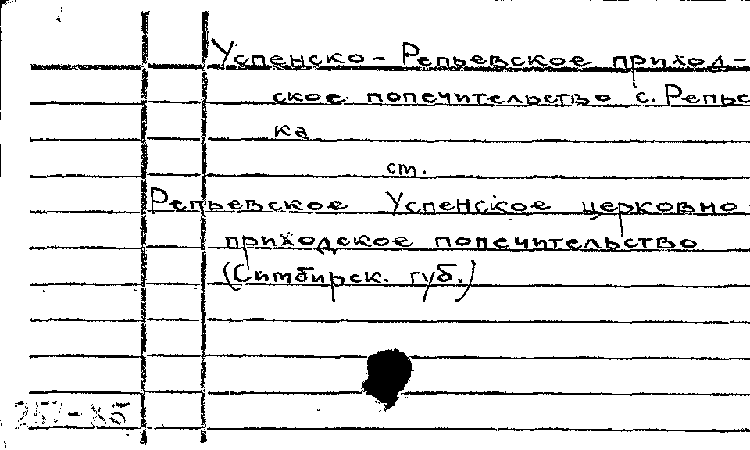 Успенско-Репьевское приход-
ское попечительство с. Репьев
ка
ст.
Репьевское Успенское церковно-
приходское попечительство
(Симбирск. губ.)
257-85